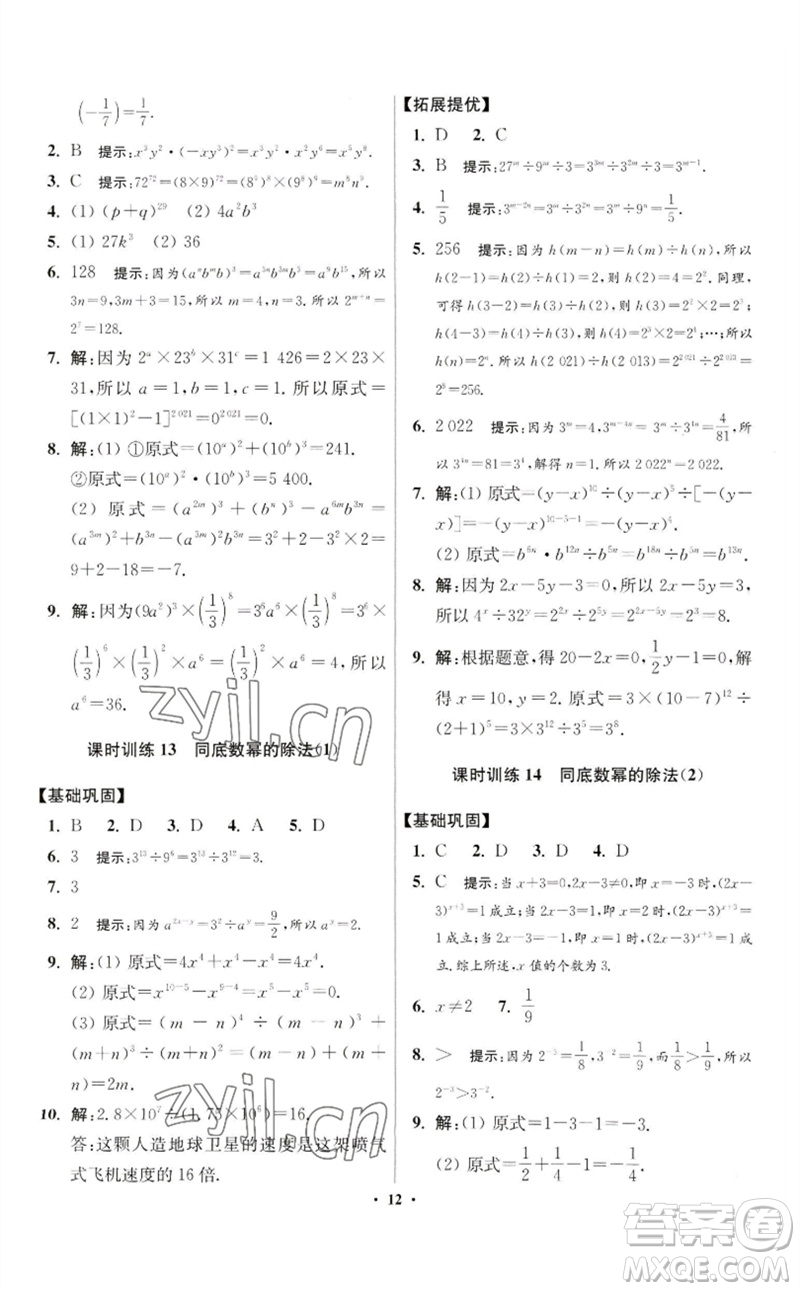 (-1/7)=1/7.
2. B 提示:x³y²·(-xy⁵)²=x³y²·x²y¹⁰=
3. C 提示:72⁷²=(8×9)⁷²=
4. (1) (p+q)²⁹ (2) 4a²b³
5. (1) 27k³ (2) 36
6. 128 提示:因为
3n=9,3m+3=15,所以m=4,n=3.所以2ᵐ⁺ⁿ=
2⁷=128.
7. 解:因为2ᵃ×23ᵇ×31ᶜ=1 426=2×23×
31,所以a=1,b=1,c=1,所以原式=
[(1×1)²-1]²⁰²¹=0²⁰²¹=0.
8. 解:(1) ①原式=(10ᵃ)²+(10ᵇ)³=241.
②原式=(10ᵃ)²·(10ᵇ)³=5 400.
(2) 原式=(a²ᵐ)³+(bⁿ)³-a⁶ᵐb³ⁿ=
(a³ᵐ)²+b³ⁿ-(a³ᵐ)²·b³ⁿ=3²+2-3²×2=
9+2-18=-7.
9. 解:因为(9a²)³×(1/3)⁸=3⁶a⁶×(1/3)⁸=
(1/3)⁶×(1/3)²×3⁶×a⁶=(1/3)²×a⁶=4,所以
a⁶=36.
课时训练13 同底数幂的除法(1)
【基础巩固】
1. B 2. D 3. D 4. A 5. D
6. 3 提示:3¹³÷9⁶=3¹³÷3¹²=3.
7. 3
8. 2 提示:因为a²ˣ⁻ʸ=3²÷aʸ=9/2,所以aʸ=2.
9. 解:(1) 原式=4x⁴+x⁴-x⁴=4x⁴.
(2) 原式=x¹⁰⁻⁵-x⁹⁻⁴=x⁵-x⁵=0.
(3) 原式=(m-n)⁴÷(m-n)³+
(m+n)³÷(m+n)²=(m-n)+
(m+n)=2m.
10. 解:2.8×10⁷÷(1.75×10⁶)=16.
答:这颗人造地球卫星的速度是这架喷气
式飞机速度的16倍.
【拓展提优】
1. D 2. C
3. B 提示:27ᵐ÷9ᵐ÷3=3³ᵐ÷3²ᵐ÷3=3ᵐ⁻¹.
4. 1/5
5. 256 提示:因为h(m-n)=h(m)÷h(n),所以
h(2-1)=h(2)÷h(1),所以h(2)=2².同理,
可得h(3-2)=h(3)÷h(2),所以h(3)=2²×2=2³;
h(4-3)=h(4)÷h(3),所以h(4)=2³×2=2⁴;…;所以
h(n)=2ⁿ.所以h(2 021)÷h(2 013)=2²⁰²¹÷2²⁰¹³=
2⁸=256.
6. 2 022 提示:因为3ᵐ=4,3ᵐ⁻⁴ⁿ=3ᵐ÷3⁴ⁿ=4/81,所
以3⁴ⁿ=81=3⁴,解得n=1.所以2 022ⁿ=2 022.
7. 解:(1) 原式=(y-x)¹⁰÷(y-x)⁵÷[-(y-
x)]=-(y-x)¹⁰⁻⁵⁻¹=-(y-x)⁴.
(2) 原式=b⁶ⁿ·b¹²ⁿ÷b⁵ⁿ=b¹⁸ⁿ÷b⁵ⁿ=b¹³ⁿ.
8. 解:因为2x-5y-3=0,所以2x-5y=3,
所以4ˣ÷32ʸ=2²ˣ÷2⁵ʸ=2²ˣ⁻⁵ʸ=2³=8.
9. 解:根据题意,得20-2x=0,1/2y-1=0,解
得x=10,y=2.原式=3×(10-7)¹²÷
(2+1)⁵=3×3¹²÷3⁵=3⁸.
课时训练14 同底数幂的除法(2)
【基础巩固】
1. C 2. D 3. D 4. D
5. C 提示:当x+3=0,2x-3≠0,即x=-3时,(2x-
3)ˣ⁺³=1成立;当2x-3=1,即x=2时,(2x-3)ˣ⁺³=
1成立;当2x-3=-1,即x=1时,(2x-3)ˣ⁺³=1
成立.综上所述,x值的个数为3.
6. x≠2 7. 1/9
8. > 提示:因为2⁻³=1/8,3⁻²=1/9,而1/8>1/9,所以2⁻³>
3⁻².
9. 解:(1) 原式=1-3-1=-3.
(2) 原式=1/2+1/4-1=-1/4.
· 12 ·
zyjl.cn
zyjl.cn
答案卷
MXQE.COM